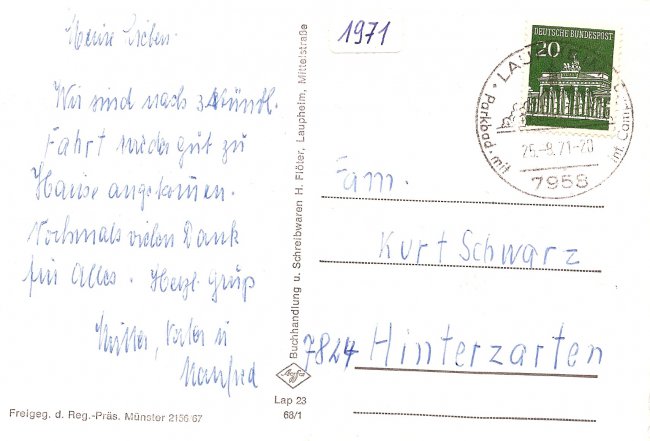 Meine Lieben.
Wir sind nach 3 stündl.
Fahrt wieder gut zu
Hause angekommen.
Nochmals vielen Dank
für Alles. Herzl. Grüße
Mutter, Vater u
Manfred
Freigeg. d. Reg.-Präs. Münster 2156/67
Buchhandlung u. Schreibwaren H. Flöter, Laupheim, Mittelstraße
Agfa
Lap 23
68/1
1971
DEUTSCHE BUNDESPOST
20
LAU
Parkbad mit
25.-8.71-20
7958
Fam.
Kurt Schwarz
7824 Hinterzarten